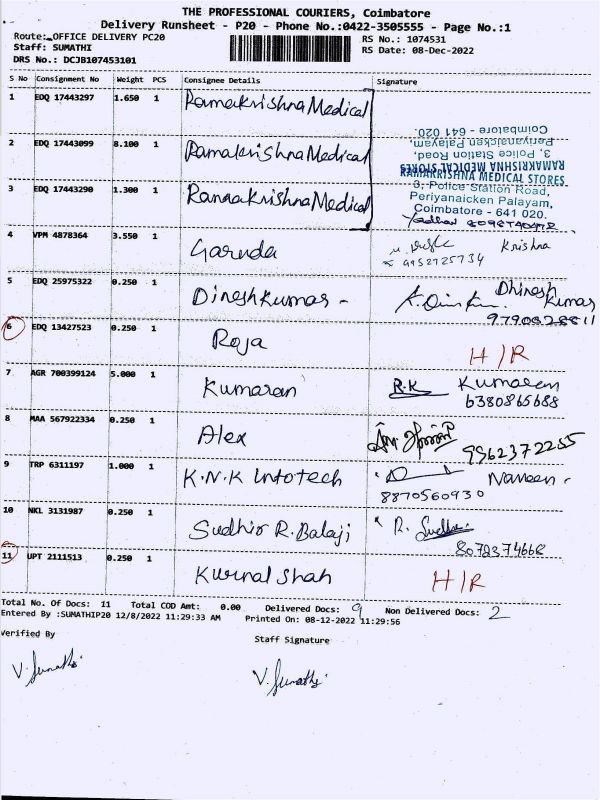 THE PROFESSIONAL COURIERS, Coimbatore
Delivery Runsheet - P20 - Phone No.:0422-3505555 - Page No.:1
Route: OFFICE DELIVERY PC20
RS No.: 1074531
Staff: SUMATHI
RS Date: 08-Dec-2022
DRS No.: DCJB107453101
S No Consignment No Weight PCS Consignee Details Signature
1 EDQ 17443297 1.650 1 Ramakrishna Medical
2 EDQ 17443099 8.100 1 Ramakrishna Medical
3 EDQ 17443290 1.300 1 Ramakrishna Medical
RAMAKRISHNA MEDICAL STORES
3, Police Station Road,
Periyanaicken Palayam,
Coimbatore - 641 020.
RAMAKRISHNA MEDICAL STORES
3, Police Station Road,
Periyanaicken Palayam,
Coimbatore - 641 020.
4 VPM 4878364 3.550 1 Garuda Krishna
9952725734
5 EDQ 25975322 0.250 1 Dinesh Kumar - Dhinesh Kumar
9790628811
6 EDQ 13427523 0.250 1 Raja H/R
7 AGR 700399124 5.000 1 Kumaran R.K Kumaran
6380865688
8 MAA 567922334 0.250 1 Alex 9962372255
9 TRP 6311197 1.000 1 K.N.K Infotech Naveen
8870560930
10 NKL 3131987 0.250 1 Sudhir R. Balaji R. Sudhir
8072374668
11 UPT 2111513 0.250 1 Kurnal Shah H/R
Total No. Of Docs: 11 Total COD Amt: 0.00 Delivered Docs: 9 Non Delivered Docs: 2
Entered By :SUMATHIP20 12/8/2022 11:29:33 AM Printed On: 08-12-2022 11:29:56
Verified By Staff Signature
V. Sumathi V. Sumathi